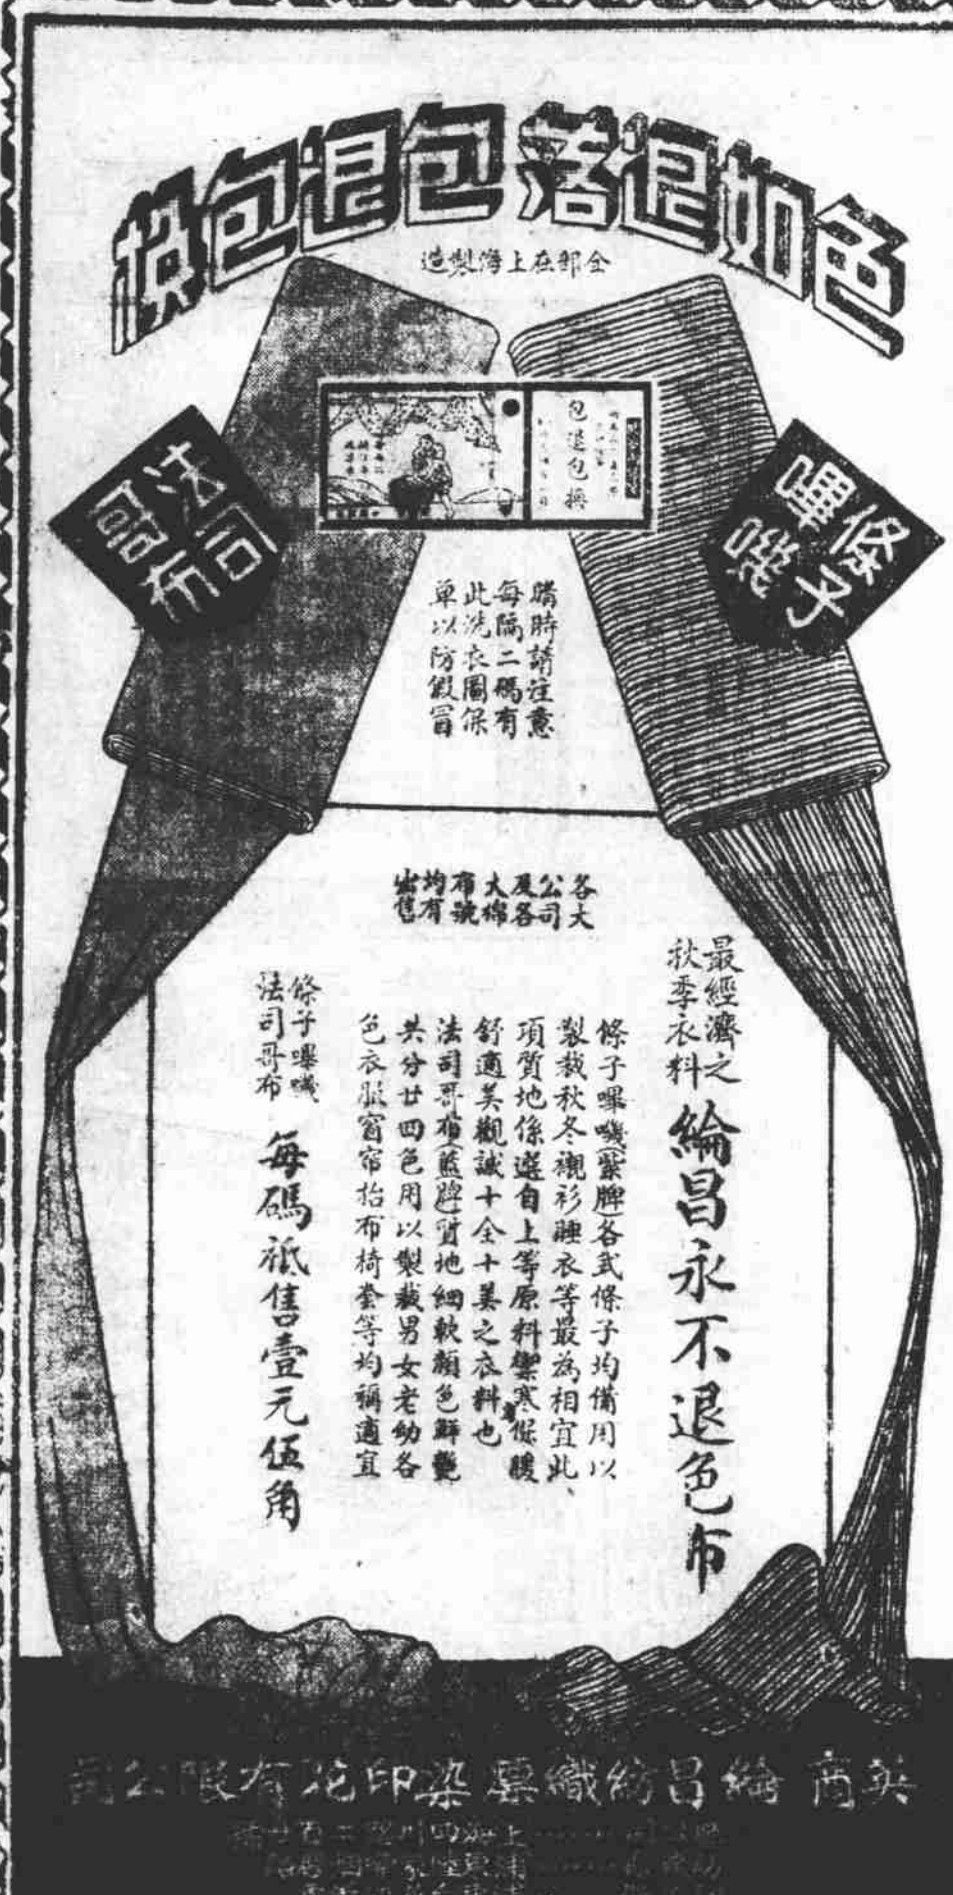 色如退落包退包換
全部在上海製造
條子
嗶嘰
法司
哥布
包退包換
購時請注意
每隔二碼有
此洗衣圖保
單以防假冒
各大
公司
及各
大棉
布號
均有
出售
最經濟之
秋季衣料
綸昌永不退色布
條子嗶嘰(紫牌)各式條子均備用以
製裁秋冬襯衫睡衣等最為相宜此、
項質地係選自上等原料禦寒保暖
舒適美觀誠十全十美之衣料也
法司哥布(藍牌)質地細軟顏色鮮艷
共分廿四色用以製裁男女老幼各
色衣服窗帘抬布椅套等均稱適宜
條子嗶嘰
法司哥布
每碼祗售壹元伍角
英商 綸昌紡織漂染印花有限公司
上海四川路二百廿